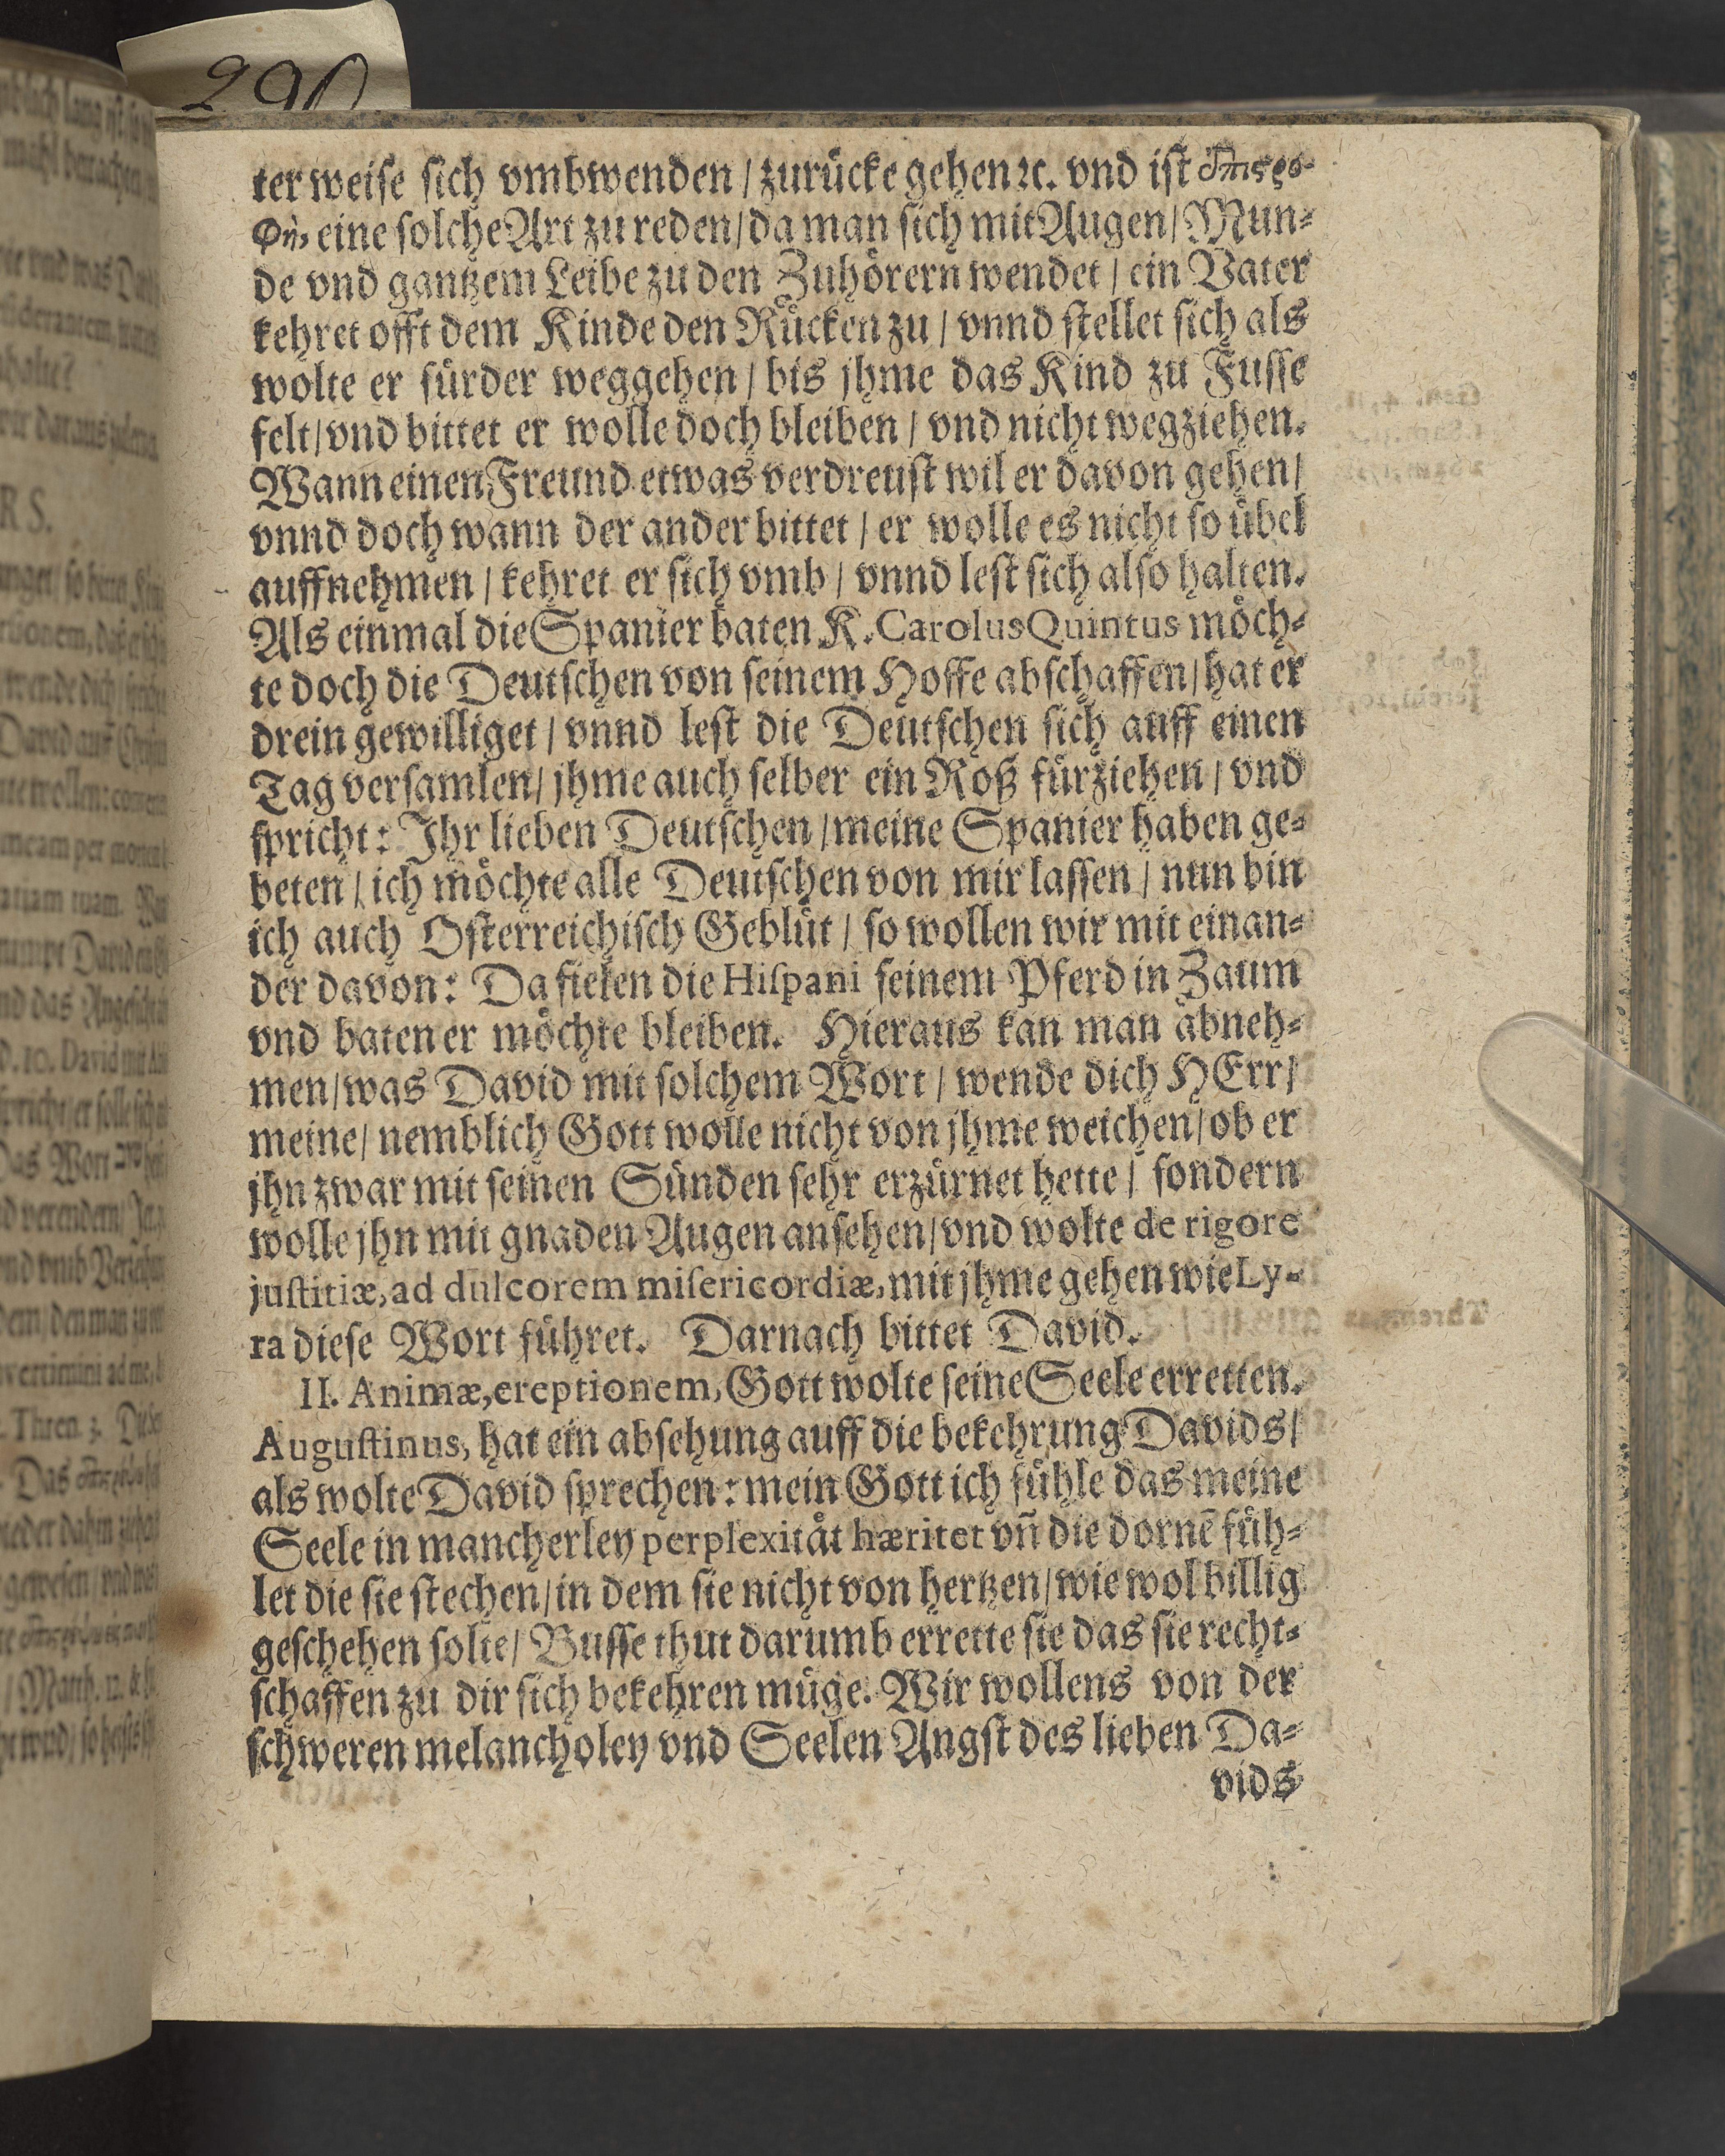 290
ter weiſe ſich vmbwenden / zurücke gehen ꝛc. vnd iſt ἐπιςρο-
φὴ, eine ſolche Art zu reden / da man ſich mit Augen / Mun-
de vnd gantzem Leibe zu den Zuhörern wendet / ein Vater
kehret offt dem Kinde den Rücken zu / vnnd ſtellet ſich als
wolte er fürder weggehen / bis jhme das Kind zu Fuſſe
felt / vnd bittet er wolle doch bleiben / vnd nicht wegziehen.
Wann einen Freund etwas verdreuſt wil er davon gehen /
vnnd doch wann der ander bittet / er wolle es nicht ſo übel
auffnehmen / kehret er ſich vmb / vnnd leſt ſich alſo halten.
Als einmal die Spanier baten K. Carolus Quintus möch-
te doch die Deutſchen von ſeinem Hoffe abſchaffen / hat er
drein gewilliget / vnnd leſt die Deutſchen ſich auff einen
Tag verſamlen / jhme auch ſelber ein Roß fürziehen / vnd
ſpricht: Jhr lieben Deutſchen / meine Spanier haben ge-
beten / ich möchte alle Deutſchen von mir laſſen / nun bin
ich auch Oſterreichiſch Geblüt / ſo wollen wir mit einan-
der davon: Da fielen die Hiſpani ſeinem Pferd in Zaum
vnd baten er möchte bleiben. Hieraus kan man abneh-
men / was David mit ſolchem Wort / wende dich HErr /
meine / nemblich Gott wolle nicht von jhme weichen / ob er
jhn zwar mit ſeinen Sünden ſehr erzürnet hette / ſondern
wolle jhn mit gnaden Augen anſehen / vnd wolte de rigore
juſtitiæ, ad dulcorem miſericordiæ, mit jhme gehen wie Ly-
ra dieſe Wort führet. Darnach bittet David.
II. Animæ, ereptionem, Gott wolte ſeine Seele erretten.
Auguſtinus, hat ein abſehung auff die bekehrung Davids /
als wolte David ſprechen: mein Gott ich fühle das meine
Seele in mancherley perplexitåt hæritet vñ die dornẽ füh-
let die ſie ſtechen / in dem ſie nicht von hertzen / wie wol billig
geſchehen ſolte / Buſſe thut darumb errette ſie das ſie recht-
ſchaffen zu dir ſich bekehren müge. Wir wollens von der
ſchweren melancholey vnd Seelen Angſt des lieben Da-
vids